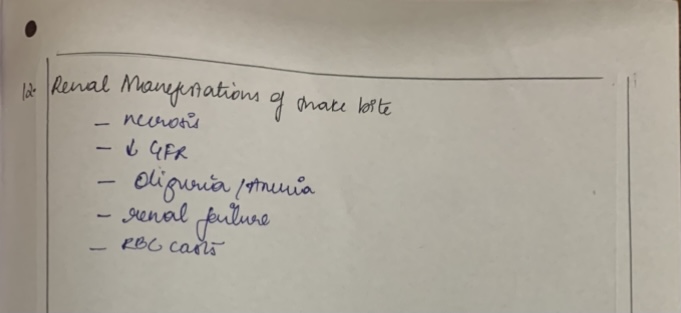 12. Renal Manifestations of snake bite
- necrosis
- ↓ GFR
- Oliguria / Anuria
- renal failure
- RBC casts